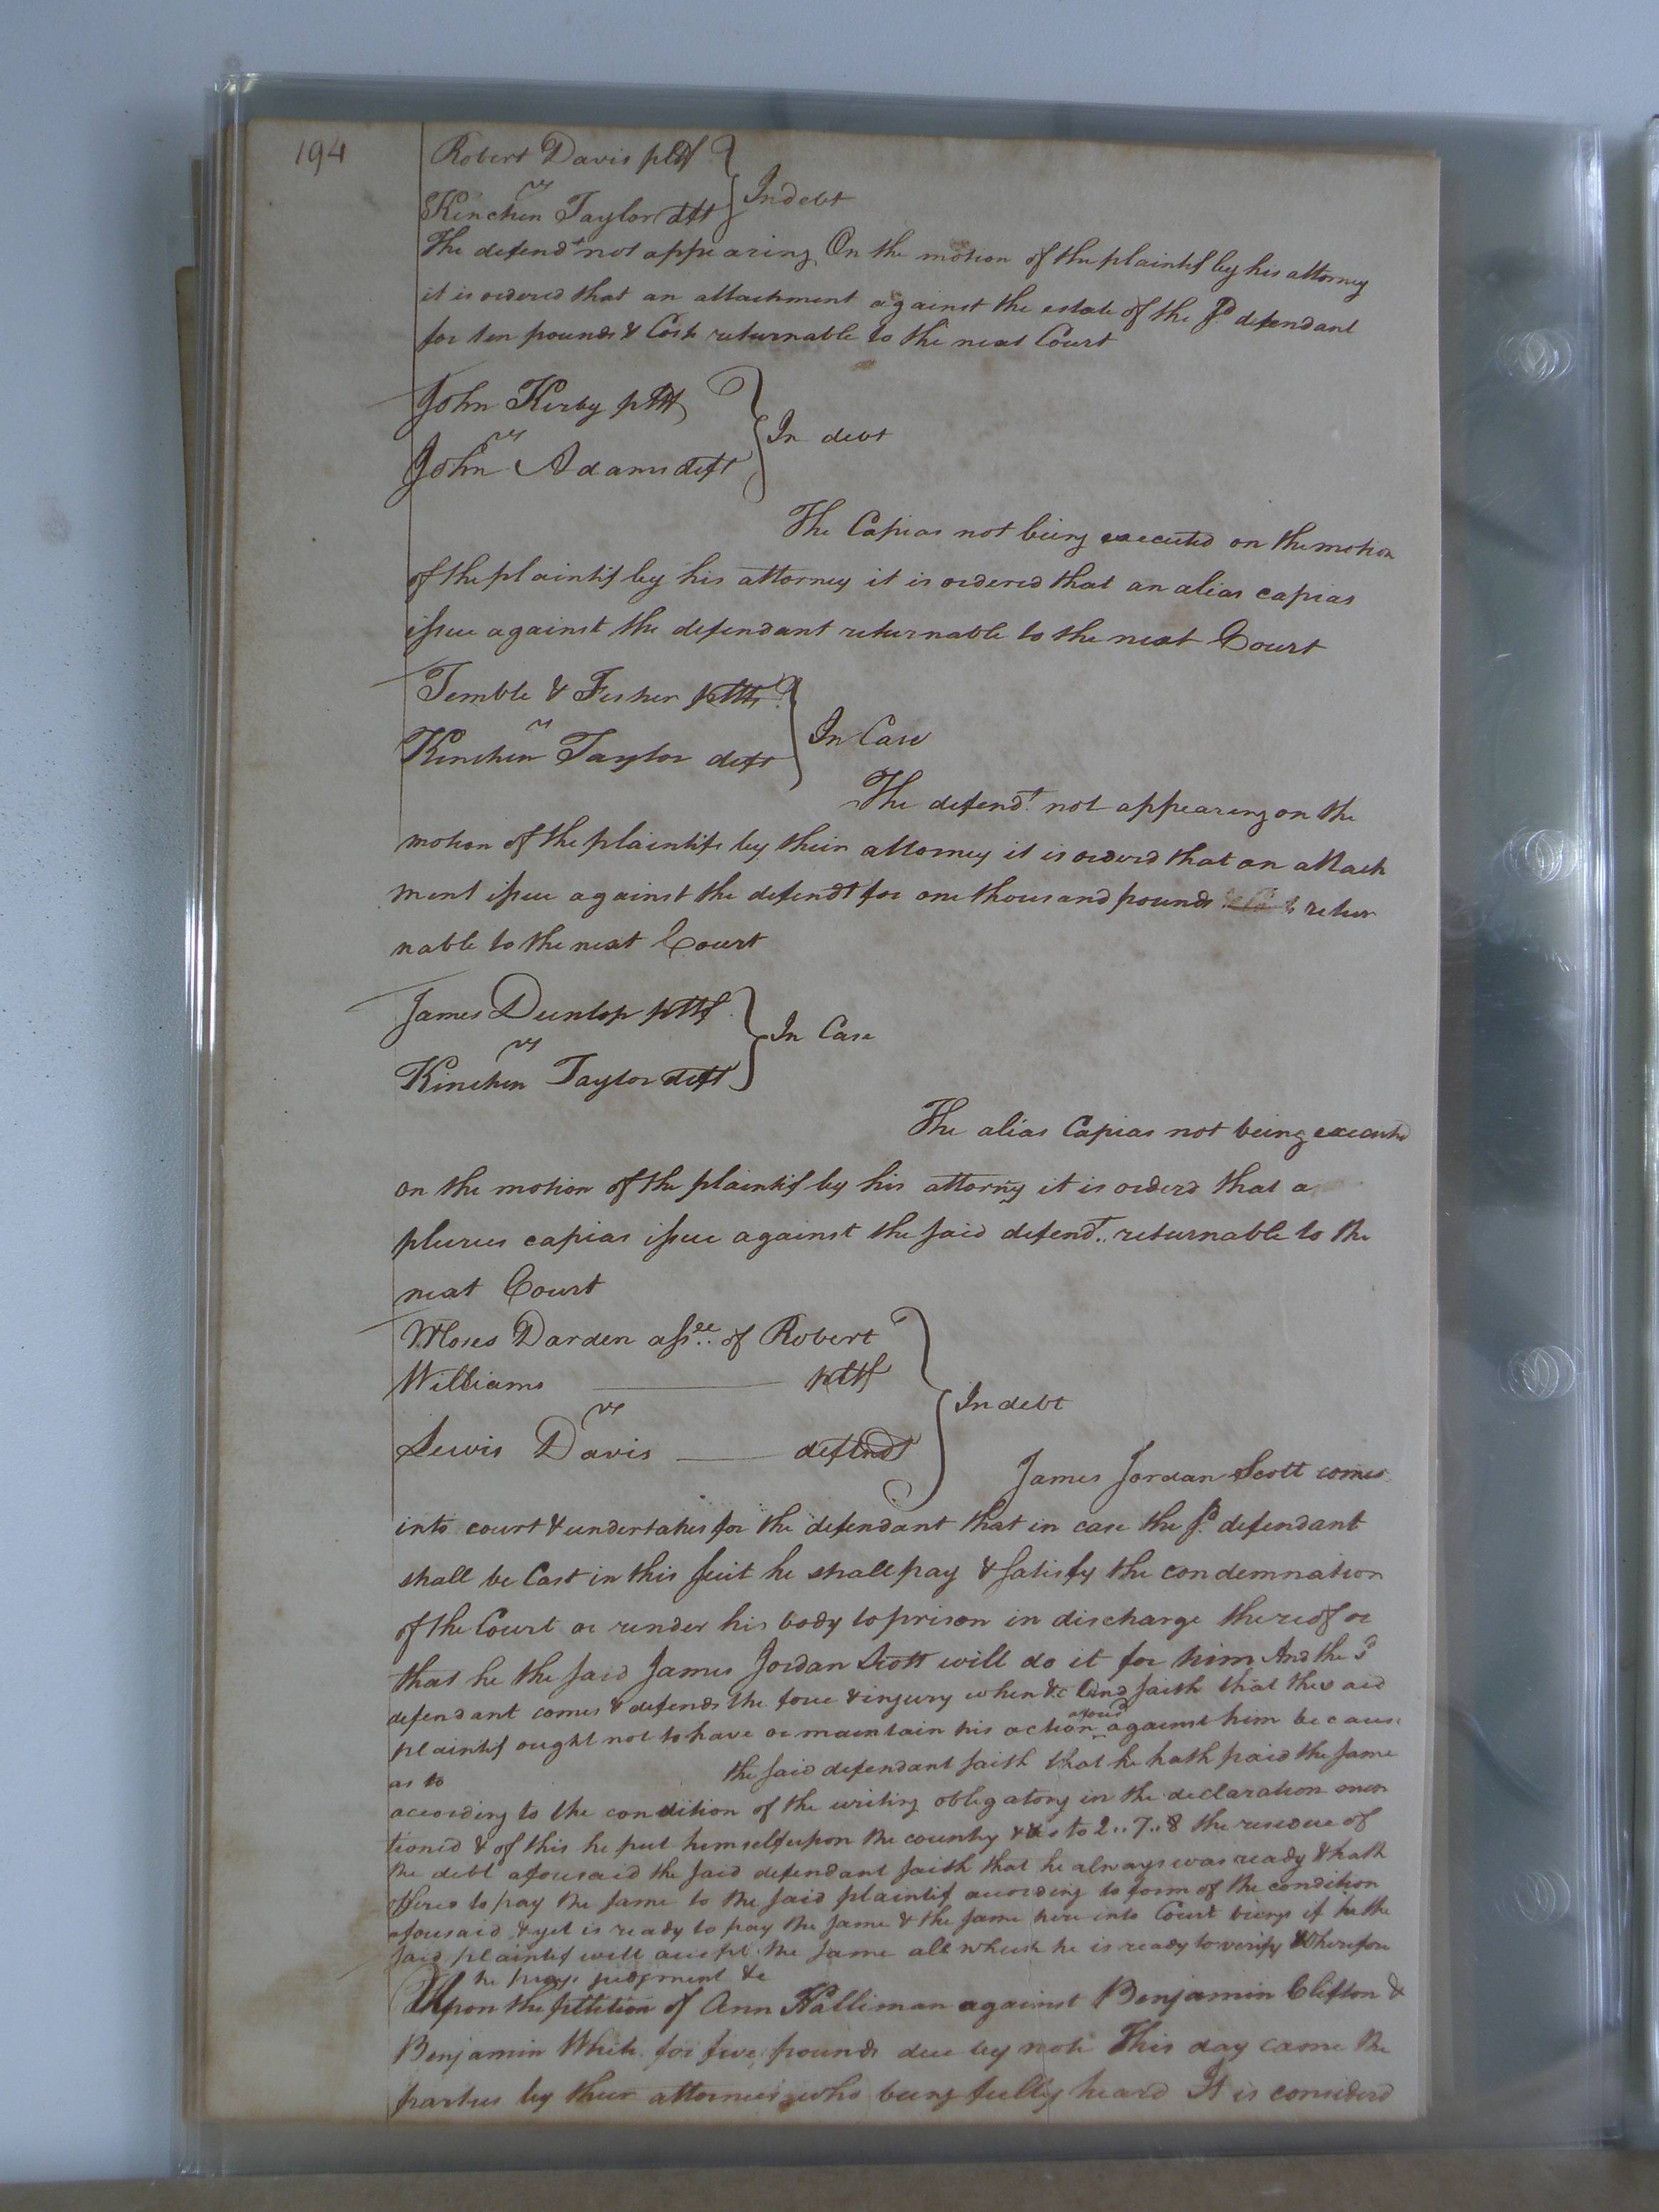 194
Robert Davis pltf
vs
Kinchen Taylor dft
In debt
The defendt not appearing On the motion of the plaintif by his attorney
it is ordered that an attachment against the estate of the sd defendant
for ten pounds & Costs returnable to the next Court
John Kirby pltf
vs
John Adams deft
In debt
The Capias not being executed on the motion
of the plaintif by his attorney it is ordered that an alias capias
issue against the defendant returnable to the next Court
Temble & Fisher pltfs
vs
Kinchin Taylor deft
In Case
The defendt. not appearing on the
motion of the plaintifs by their attorney it is orderd that an attach
ment issue against the defendt for one thousand pounds retur
nable to the next Court
James Dunlop pltf
vs
Kinchin Taylor deft
In Case
The alias Capias not being executed
on the motion of the plaintif by his attorny it is orderd that a
pluries capias issue against the said defendt.. returnable to the
next Court
Moses Darden assee.. of Robert
Williams pltf
vs
Lewis Davis defendt
In debt
James Jordan Scott comes
into court & undertakes for the defendant that in case the sd. defendant
shall be Cast in this suit he shall pay & satisfy the condemnation
of the Court or render his body to prison in discharge thereof or
that he the said James Jordan Scott will do it for him And the sd
defendant comes & defends the force & injury when &c And saith that the said
plaintif ought not to have or maintain his action afousd against him because
as to the said defendant saith that he hath paid the same
according to the condition of the writing obligatory in the declaration men
tioned & of this he put himself upon the country & as to 2..7..8 the residue of
the debt afousaid the said defendant saith that he always was ready & hath
offered to pay the same to the said plaintif according to form of the condition
afousaid & yet is ready to pay the same & the same here into Court brings if he the
said plaintif will accept the same all which he is ready to verify Wherefore
he prays judgment &c
Upon the petition of Ann Halliman against Benjamin Clifton &
Benjamin White for five pounds due by note This day came the
parties by their attornies who being fully heard It is considerd